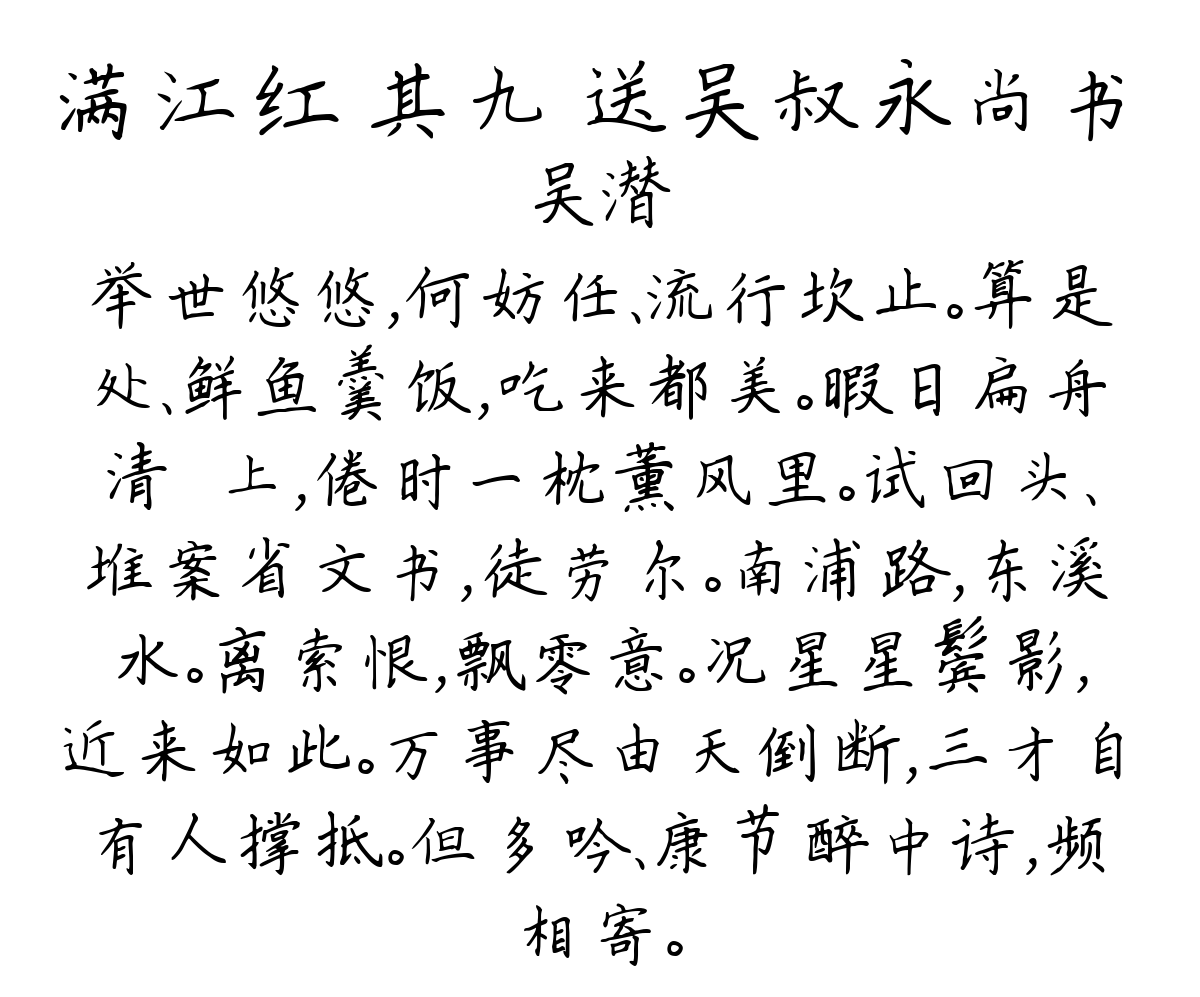 满江红 其九 送吴叔永尚书
吴潜
举世悠悠,何妨任、流行坎止。算是
处、鲜鱼羹饭,吃来都美。暇日扁舟
清 上,倦时一枕薰风里。试回头、
堆案省文书,徒劳尔。南浦路,东溪
水。离索恨,飘零意。况星星鬓影,
近来如此。万事尽由天倒断,三才自
有人撑抵。但多吟、康节醉中诗,频
相寄。